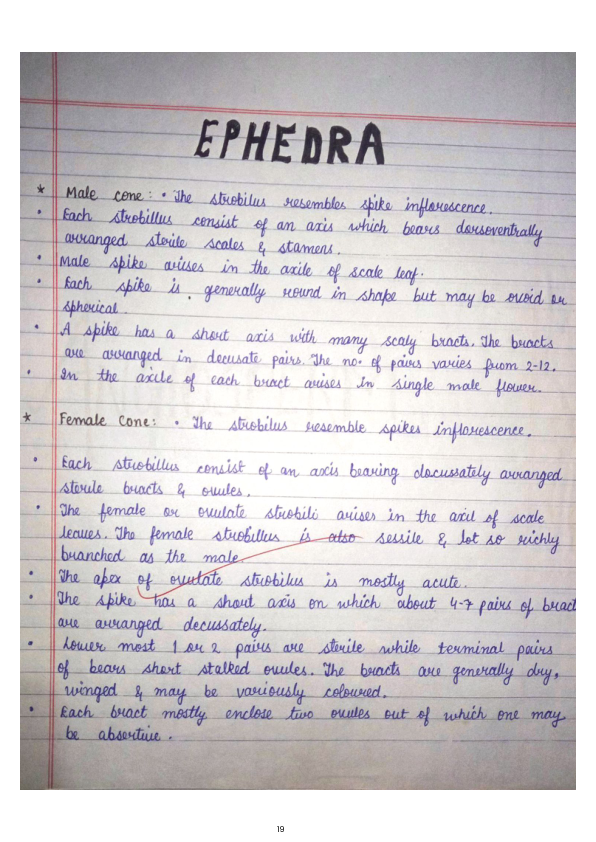 EPHEDRA
* Male cone: • The strobilus resembles spike inflorescence.
• Each strobillus consist of an axis which bears dorsoventrally
arranged sterile scales & stamens.
• Male spike arises in the axile of scale leaf.
• Each spike is generally round in shape but may be ovoid or
spherical.
• A spike has a short axis with many scaly bracts. The bracts
are arranged in decusate pairs. The no. of pairs varies from 2-12.
• In the axile of each bract arises in single male flower.
* Female Cone: • The strobilus resemble spikes inflorescence.
• Each strobillus consist of an axis bearing docussately arranged
sterile bracts & ovules.
• The female or ovulate strobili arises in the axil of scale
leaves. The female strobillus is also sessile & lot so richly
branched as the male.
• The apex of ovulate strobilus is mostly acute.
• The spike has a short axis on which about 4-7 pairs of bract
are arranged decussately.
• Lower most 1 or 2 pairs are sterile while terminal pairs
of bears short stalked ovules. The bracts are generally dry,
winged & may be variously coloured.
• Each bract mostly enclose two ovules out of which one may
be absertive.
19